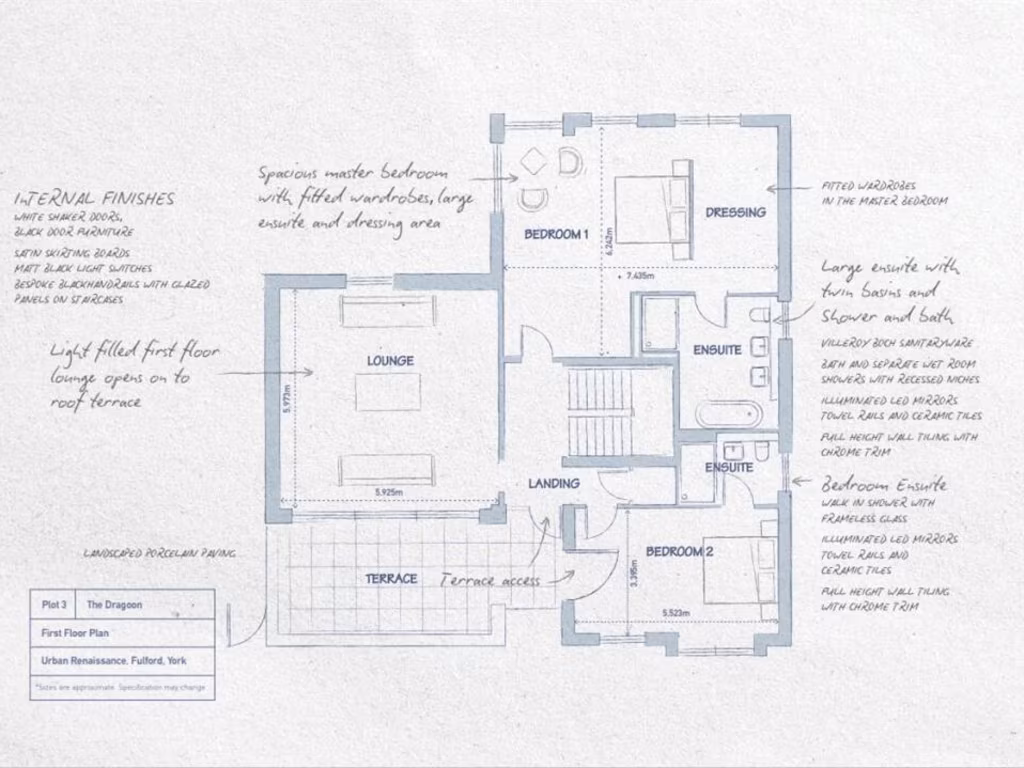 Spacious master bedroom
with fitted wardrobes, large
ensuite and dressing area
InTERNAL FINISHES
WHITE SHAKER DOORS,
BLACK DOOR FURNITURE
SATIN SKIRTING BOARDS
MATT BLACK LIGHT SWITCHES
BESPOKE BLACKHANDRAILS WITH GLAZED
PANELS ON STAIRCASES
Light filled first floor
lounge opens on to
roof terrace
BEDROOM 1
DRESSING
6.242m
7.435m
FITTED WARDROBES
IN THE MASTER BEDROOM
Large ensuite with
twin basins and
Shower and bath
VILLEROY BOCH SANITARYWARE
BATH AND SEPARATE WET ROOM
SHOWERS WITH RECESSED NICHES
ILLUMINATED LED MIRRORS
TOWEL RAILS AND CERAMIC TILES
FULL HEIGHT WALL TILING WITH
CHROME TRIM
LOUNGE
5.973m
5.925m
ENSUITE
ENSUITE
LANDING
Bedroom Ensuite
WALK IN SHOWER WITH
FRAMELESS GLASS
ILLUMINATED LED MIRRORS
TOWEL RAILS AND
CERAMIC TILES
FULL HEIGHT WALL TILING
WITH CHROME TRIM
BEDROOM 2
3.395m
5.523m
LANDSCAPED PORCELAIN PAVING
TERRACE
Terrace access
Plot 3 The Dragoon
First Floor Plan
Urban Renaissance, Fulford, York
*Sizes are approximate. Specification may change